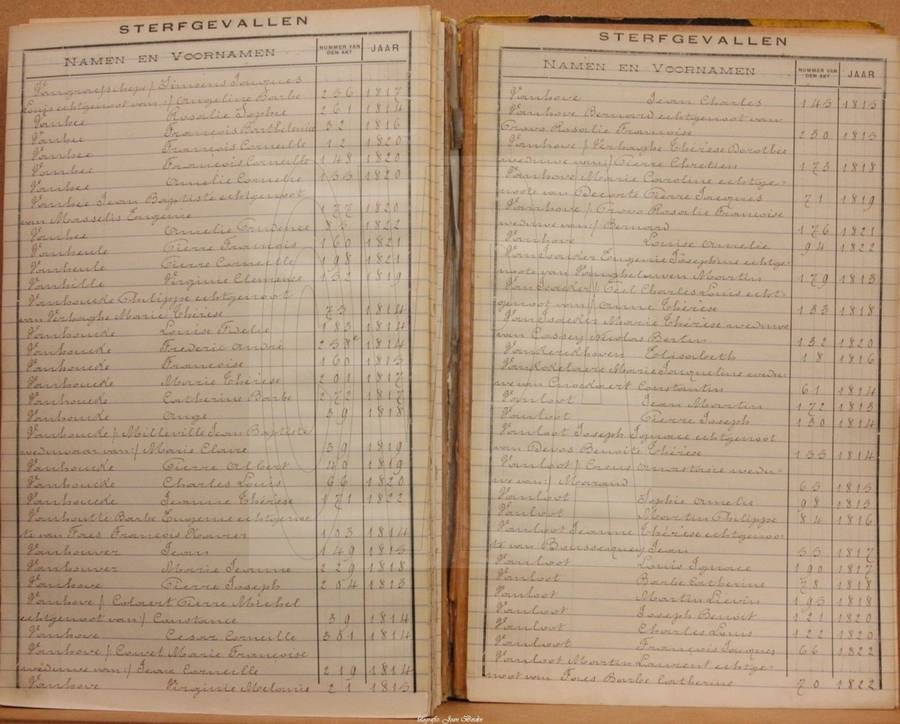 STERFGEVALLEN
NAMEN EN VOORNAMEN NUMMER VAN DEN AKT JAAR
Vangraefschepe / Simoens Jacques
Louis echtgenoot van / Angeline Barbe 236 1817
Vanhee Rosalie Sophie 261 1814
Vanhee François Barthelemie 32 1816
Vanhee François Corneille 12 1820
Vanhee François Corneille 148 1820
Vanhee Amelie Cornelie 153 1820
Vanhee Jean Baptiste echtgenoot
van Eugenie 177 1820
Vanhee Amelie Prudence 85 1822
Vanheule Pierre François 160 1821
Vanheule Pierre Corneille 198 1821
Vanhille Virginie Clemence 132 1819
Vanhoucke Philippe echtgenoot
van Verhaghe Marie Thérèse 73 1814
Vanhoucke Louise Fidelie 183 1814
Vanhoucke Frederic André 238 1814
Vanhoucke Françoise 160 1815
Vanhoucke Marie Thérèse 201 1817
Vanhoucke Catherine Barbe 272 1817
Vanhoucke Ange 39 1818
Vanhoucke / Milleville Jean Baptiste
weduwaar van / Marie Claire 39 1819
Vanhoucke Pierre Albert 49 1819
Vanhoucke Charles Louis 66 1820
Vanhoucke Jeanne Thérèse 171 1822
Vanhoutte Barbe Eugenie echtgenoo
te van Fores François Xavier 103 1814
Vanhouver Jean 149 1815
Vanhouver Marie Jeanne 229 1818
Vanhove Pierre Joseph 204 1813
Vanhove / Colaert Pierre Michel
echtgenoot van / Constance 39 1814
Vanhove Cesar Corneille 381 1814
Vanhove / Couvet Marie Françoise
weduwe van / Jean Corneille 219 1814
Vanhove Virginie Melanie 21 1815
STERFGEVALLEN
NAMEN EN VOORNAMEN NUMMER VAN DEN AKT JAAR
Vanhove Jean Charles 145 1815
Vanhove Bernard echtgenoot van
Rosalie Françoise 250 1815
Vanhove / Verhaeghe Thérèse Dorothée
weduwe van / Pierre Chretien 173 1818
Vanhove Marie Caroline echtge-
noote van Decorte Pierre Jacques 71 1819
Vanhove / Rosalie Françoise
weduwe van / Bernard 176 1821
Vanhove Louise Amelie 94 1822
Eugenie Josephine echtge-
noote van Martin 179 1813
Charles Louis echt-
genoot van / Anne Thérèse 133 1818
Marie Thérèse weduwe
van Bertin 132 1820
Vankerckhoven Elisabeth 18 1816
Marie Jacqueline wedu-
we van Constantin 61 1814
Vanloot Jean Martin 172 1813
Vanloot Pierre Joseph 130 1814
Vanloot Joseph Ignace echtgenoot
van Devos Benoite Thérèse 135 1814
Vanloot / Anastasie wedu-
we van / 63 1815
Vanloot Sophie Amelie 98 1815
Vanloot Martin Philippe 84 1816
Vanloot Jeanne Thérèse echtgenoo-
te van Jean 33 1817
Vanloot Louis Ignace 190 1817
Vanloot Barbe Catherine 78 1818
Vanloot Martin Lievin 195 1818
Vanloot Joseph Benoit 121 1820
Vanloot Charles Louis 122 1820
Vanloot François Jacques 66 1822
Vanloot Martin Laurent echtge-
noot van Fores Barbe Catherine 70 1822